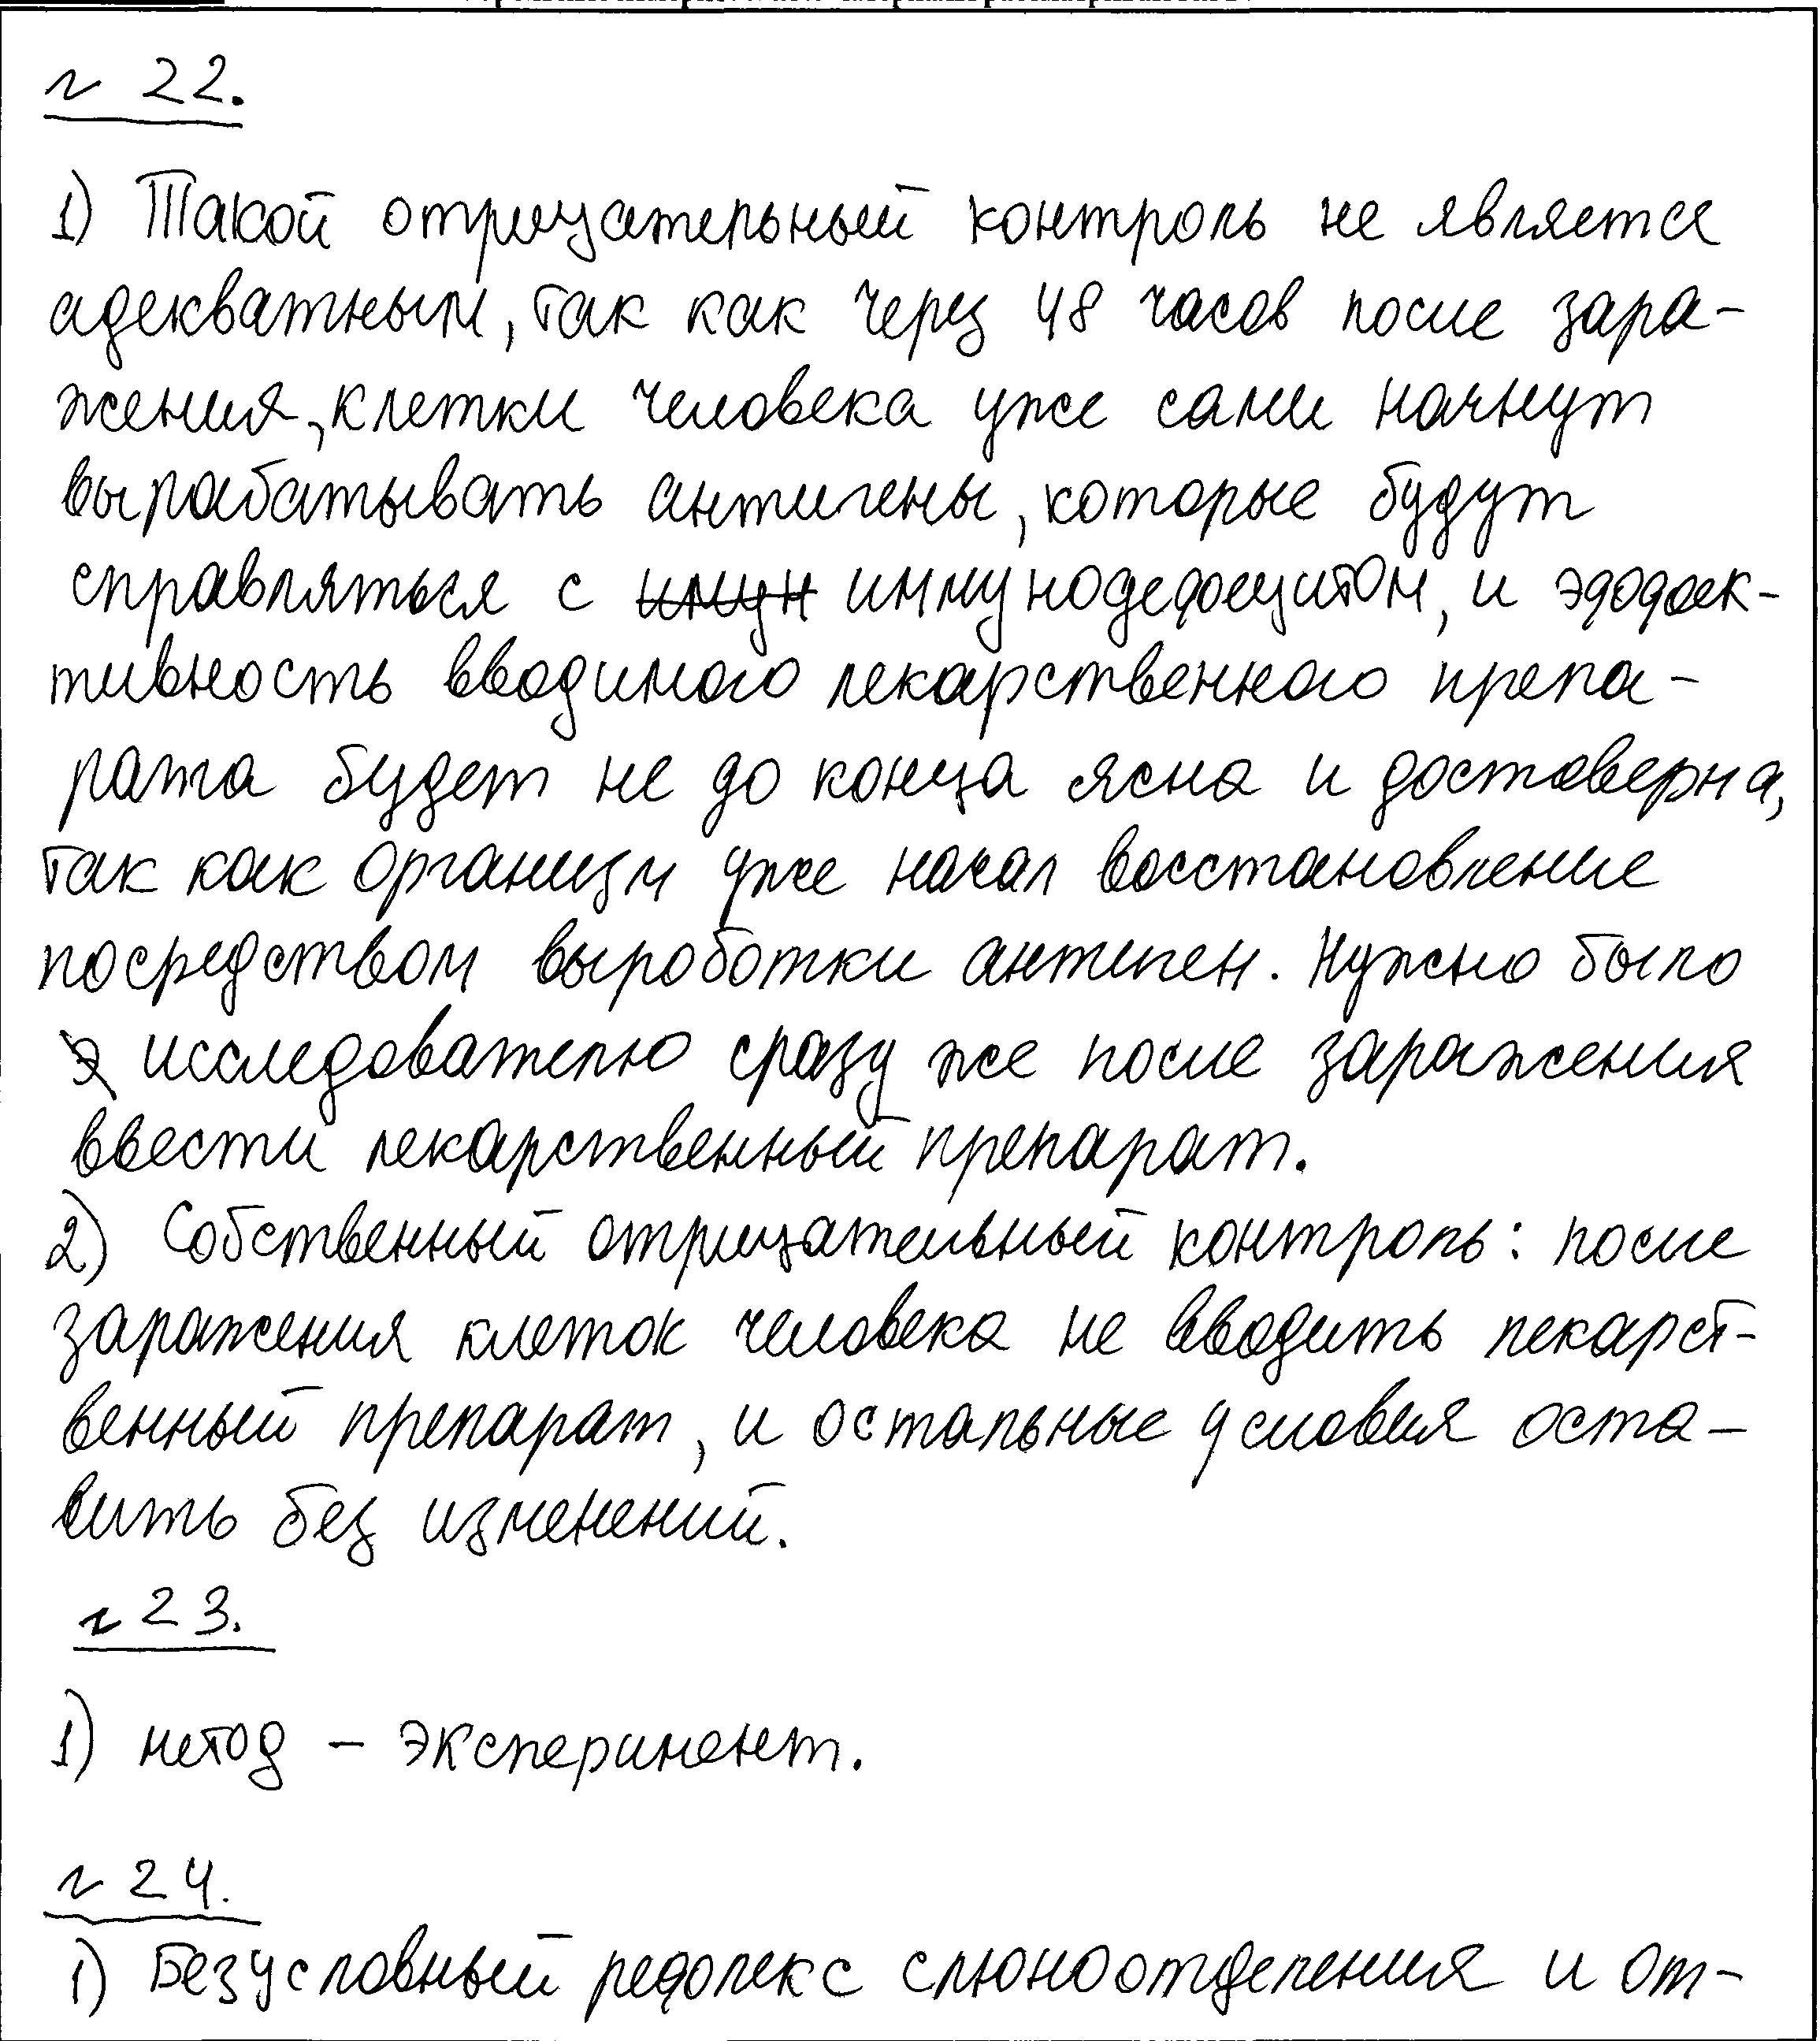 № 22.
1) Такой отрицательный контроль не является
адекватным, так как через 48 часов после зара-
жения, клетки человека уже сами начнут
вырабатывать антигены, которые будут
справляться с имун иммунодефицитом, и эффек-
тивность вводимого лекарственного препа-
рата будет не до конца ясна и достоверна,
так как организм уже начал восстановление
посредством выработки антиген. Нужно было
исследователю сразу же после заражения
ввести лекарственный препарат.
2) Собственный отрицательный контроль: после
заражения клеток человека не вводить лекарст-
венный препарат, и остальные условия оста-
вить без изменений.
№ 23.
1) метод – эксперимент.
№ 24.
1) Безусловный рефлекс слюноотделения и от-